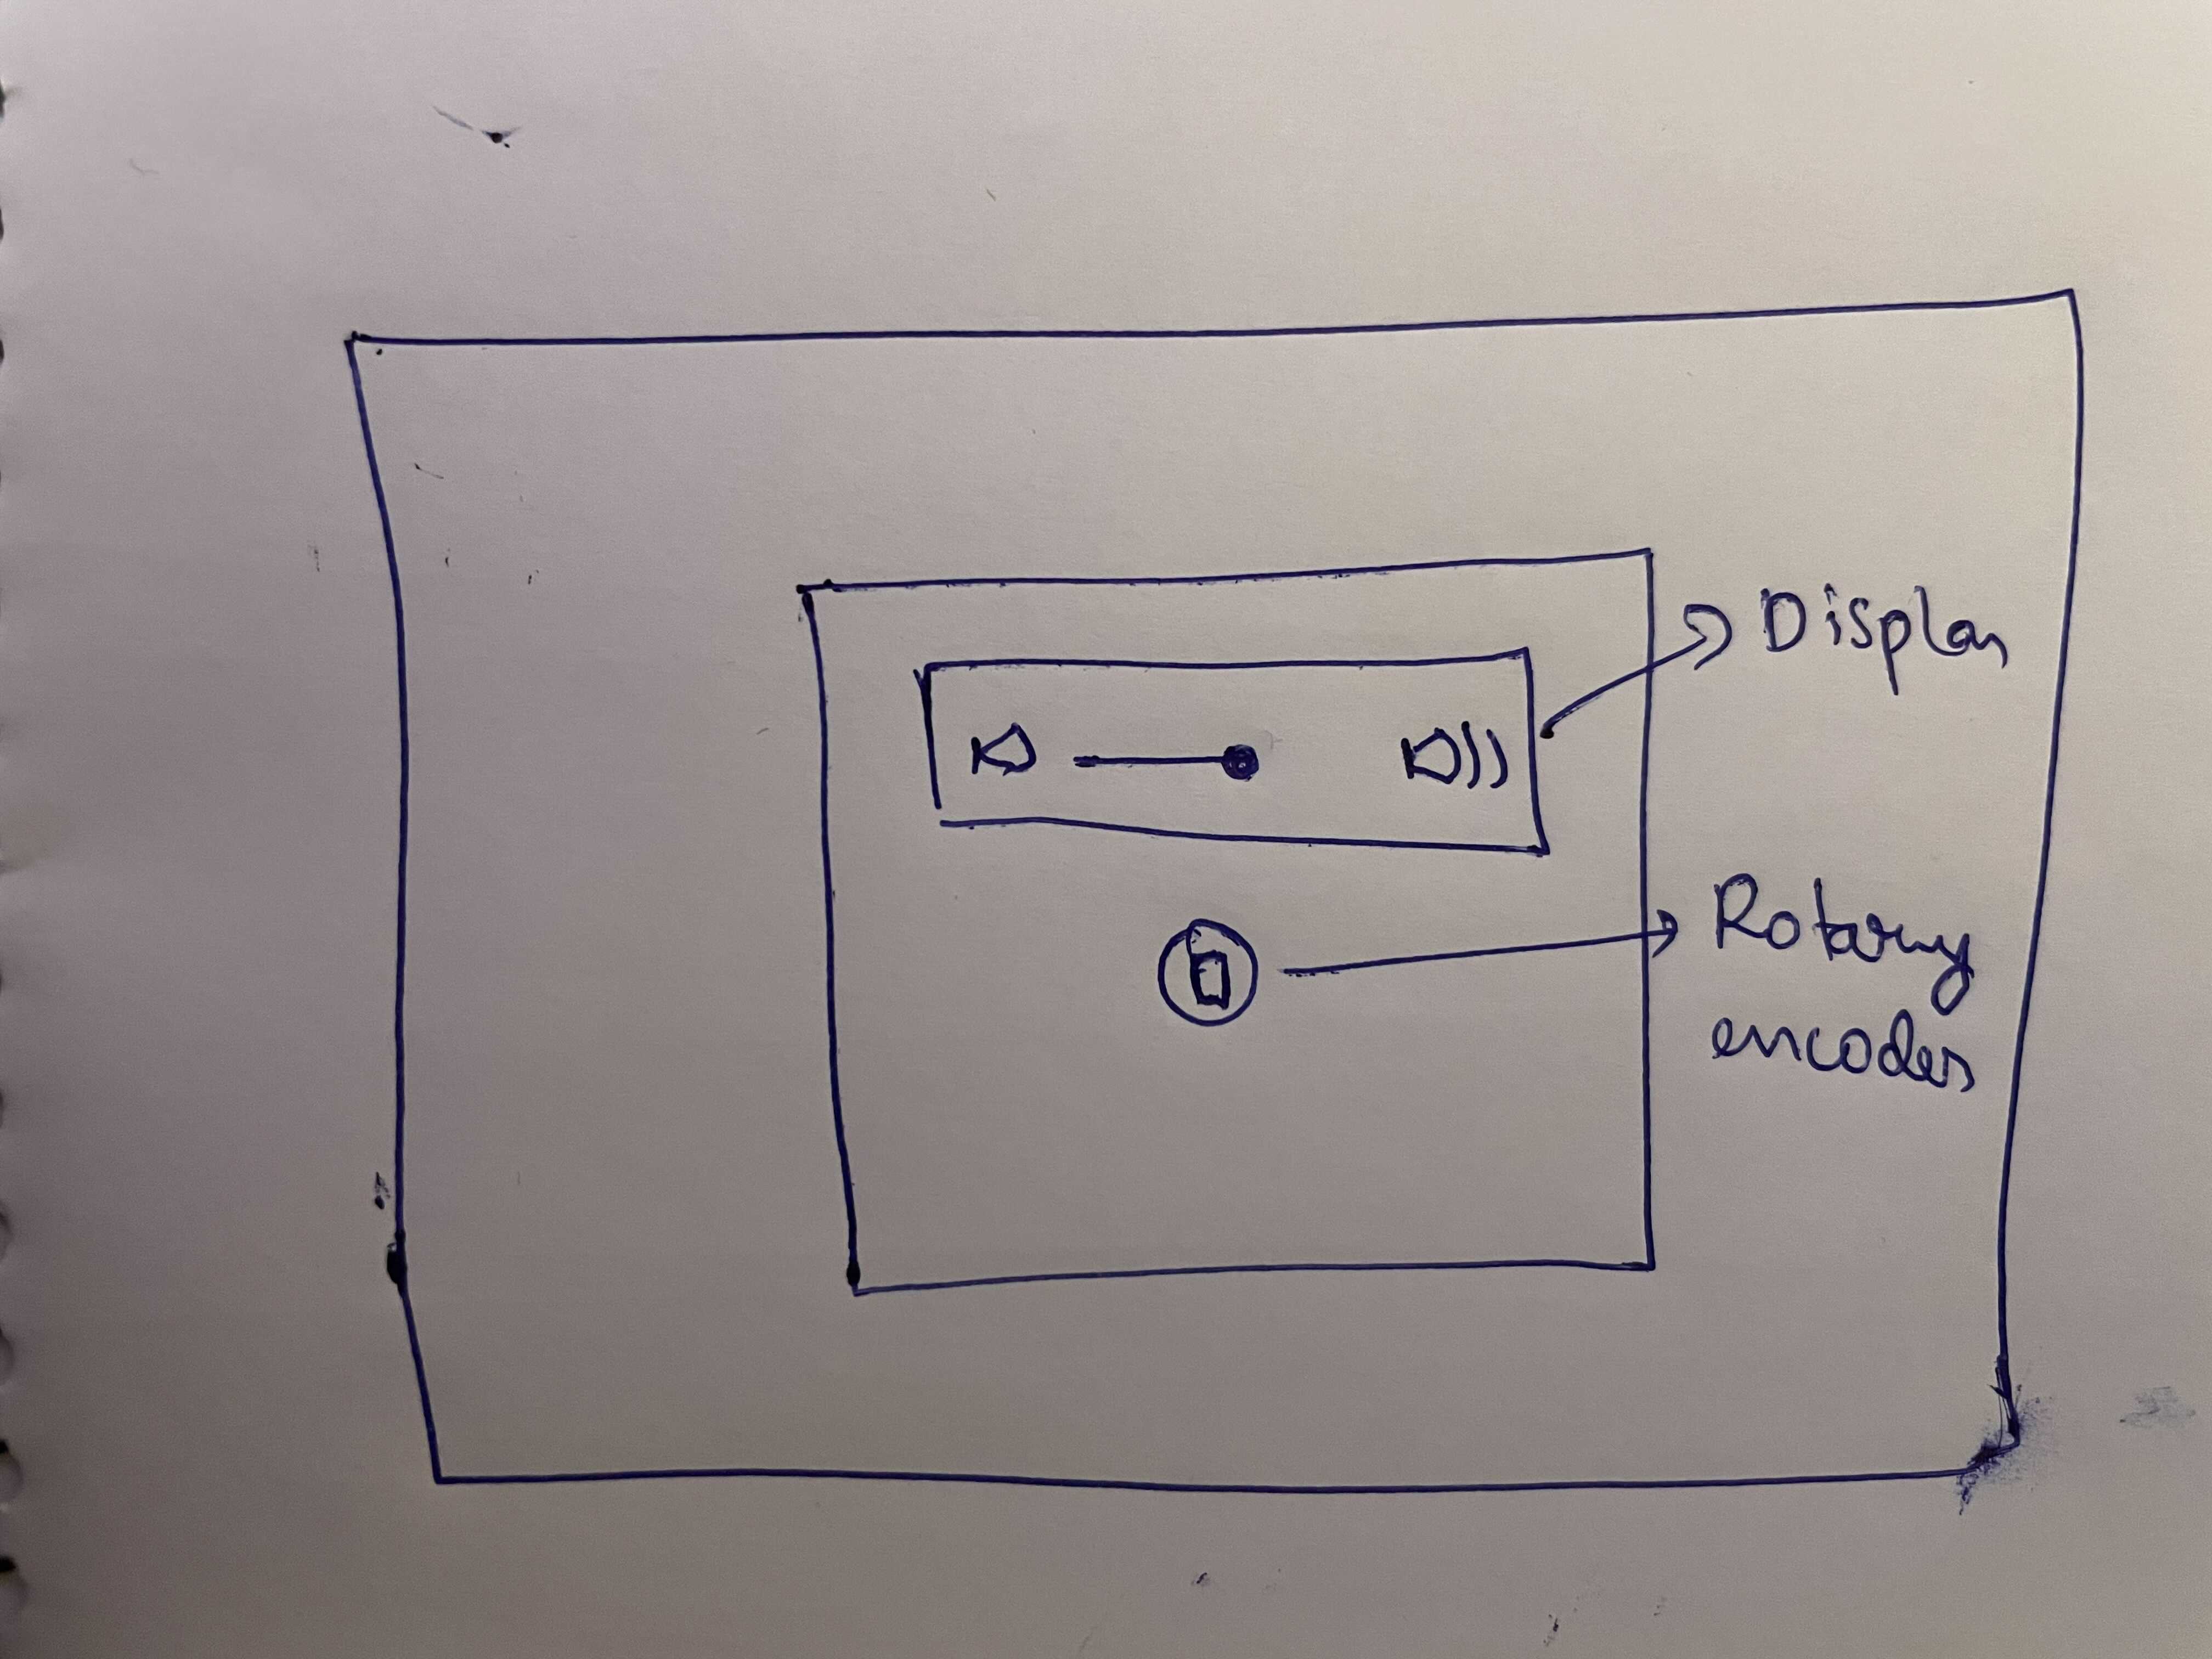 Display
Rotary
encoder